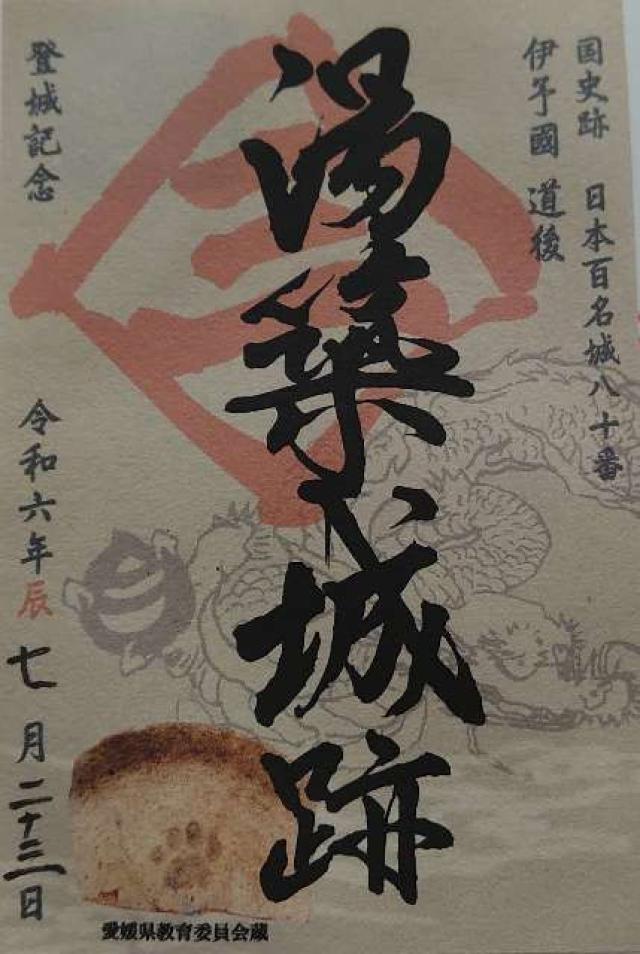 国史跡 日本百名城八十番
伊予國 道後
湯築城跡
登城記念
令和六年辰 七月二十三日
愛媛県教育委員会蔵